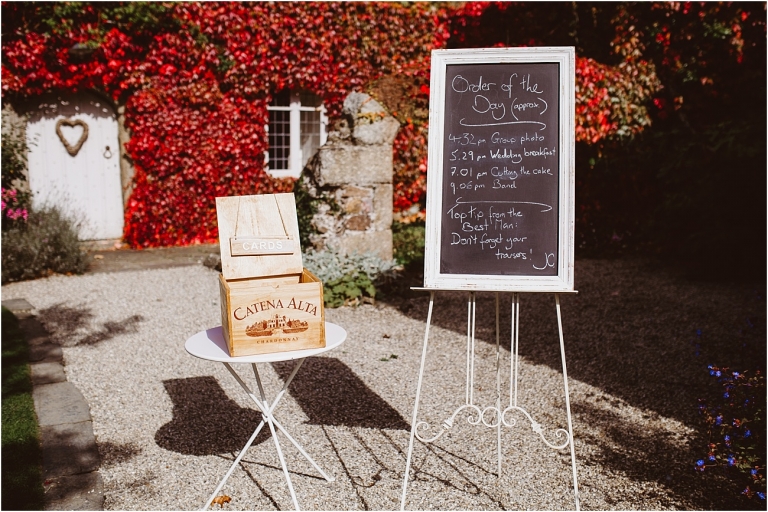 CARDS
CATENA ALTA
CHARDONNAY
Order of the
Day (approx)
4.32 pm Group photo
5.29 pm Wedding breakfast
7.01 pm Cutting the cake
9.06 pm Band
Top tip from the
Best Man:
Don't forget your
trousers! JC